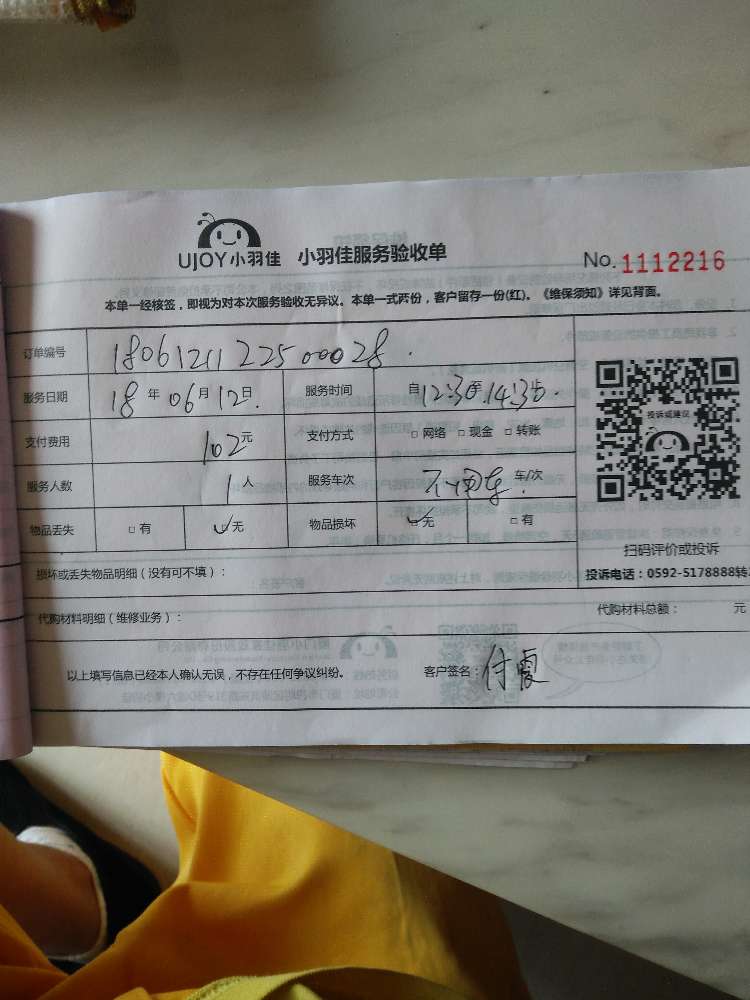 UJOY小羽佳 小羽佳服务验收单
No. 1112216
本单一经核签，即视为对本次服务验收无异议。本单一式两份，客户留存一份(红)。《维保须知》详见背面。
订单编号 180612112250028
服务日期 18年06月12日. 服务时间 自12:30至14:30止
支付费用 102元 支付方式 □网络 □现金 □转账
服务人数 1人 服务车次 车/次
物品丢失 □有 ✓无 物品损坏 ✓无 □有
投诉或建议
扫码评价或投诉
投诉电话：0592-5178888转
损坏或丢失物品明细（没有可不填）：
代购材料明细（维修业务）： 代购材料总额： 元
以上填写信息已经本人确认无误，不存在任何争议纠纷。 客户签名：付震